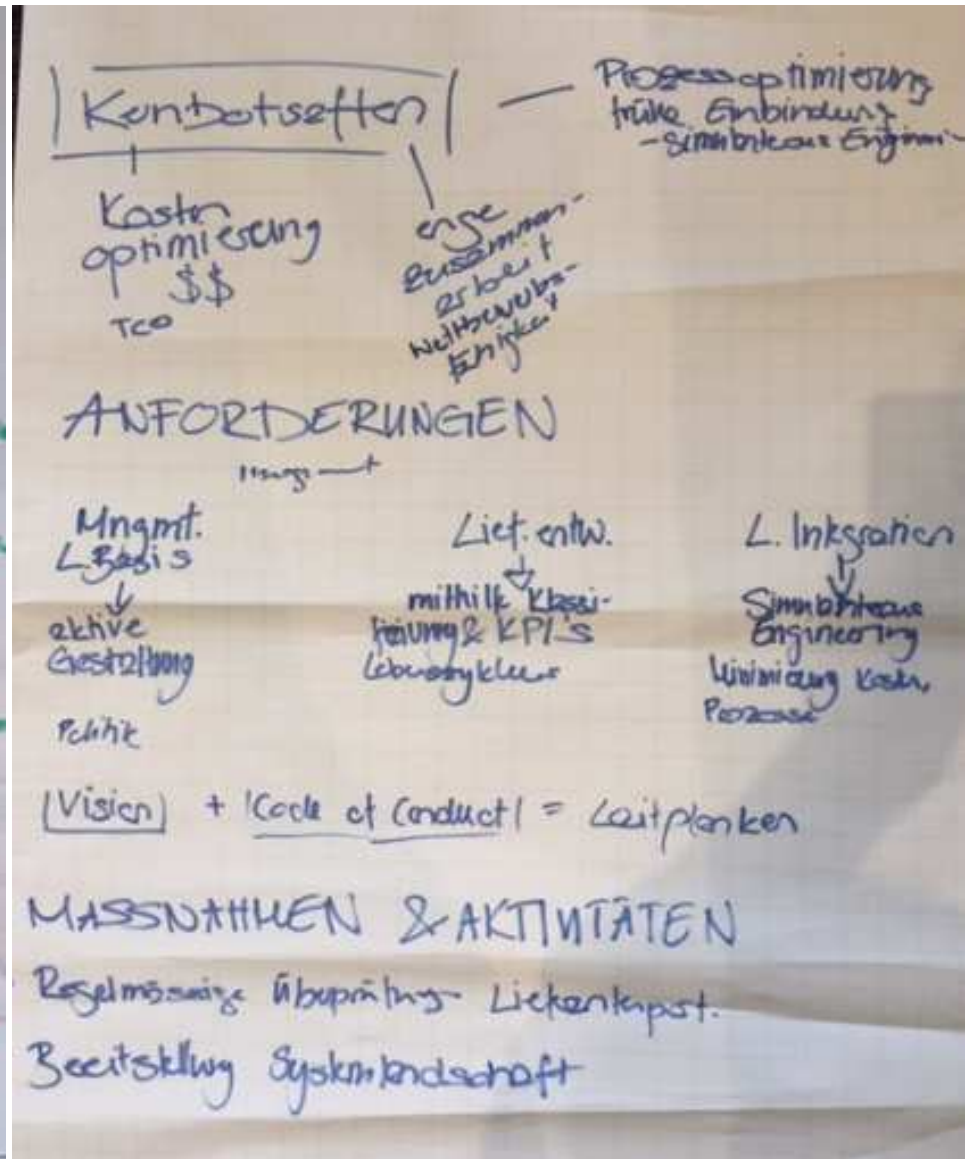 Kernbotschaften
Prozessoptimierung
frühe Einbindung
- Simultaneous Engineeri-
Kosten
optimierung
$$
TCO
enge
Zusammen-
arbeit
Wettbewerbs-
fähigkeit
ANFORDERUNGEN
Mngmt.
L Basis
aktive
Gestaltung
Politik
Lief. entw.
mithilfe Klassi-
fizierung & KPI's
Lebenszyklus
L. Integration
Simultaneous
Engineering
Minimierung Kosten,
Prozesse
Vision + Code of Conduct = Leitplanken
MASSNAHMEN & AKTIVITÄTEN
Regelmässige Überprüfung Lieferantenport.
Bereitstellung Systemlandschaft